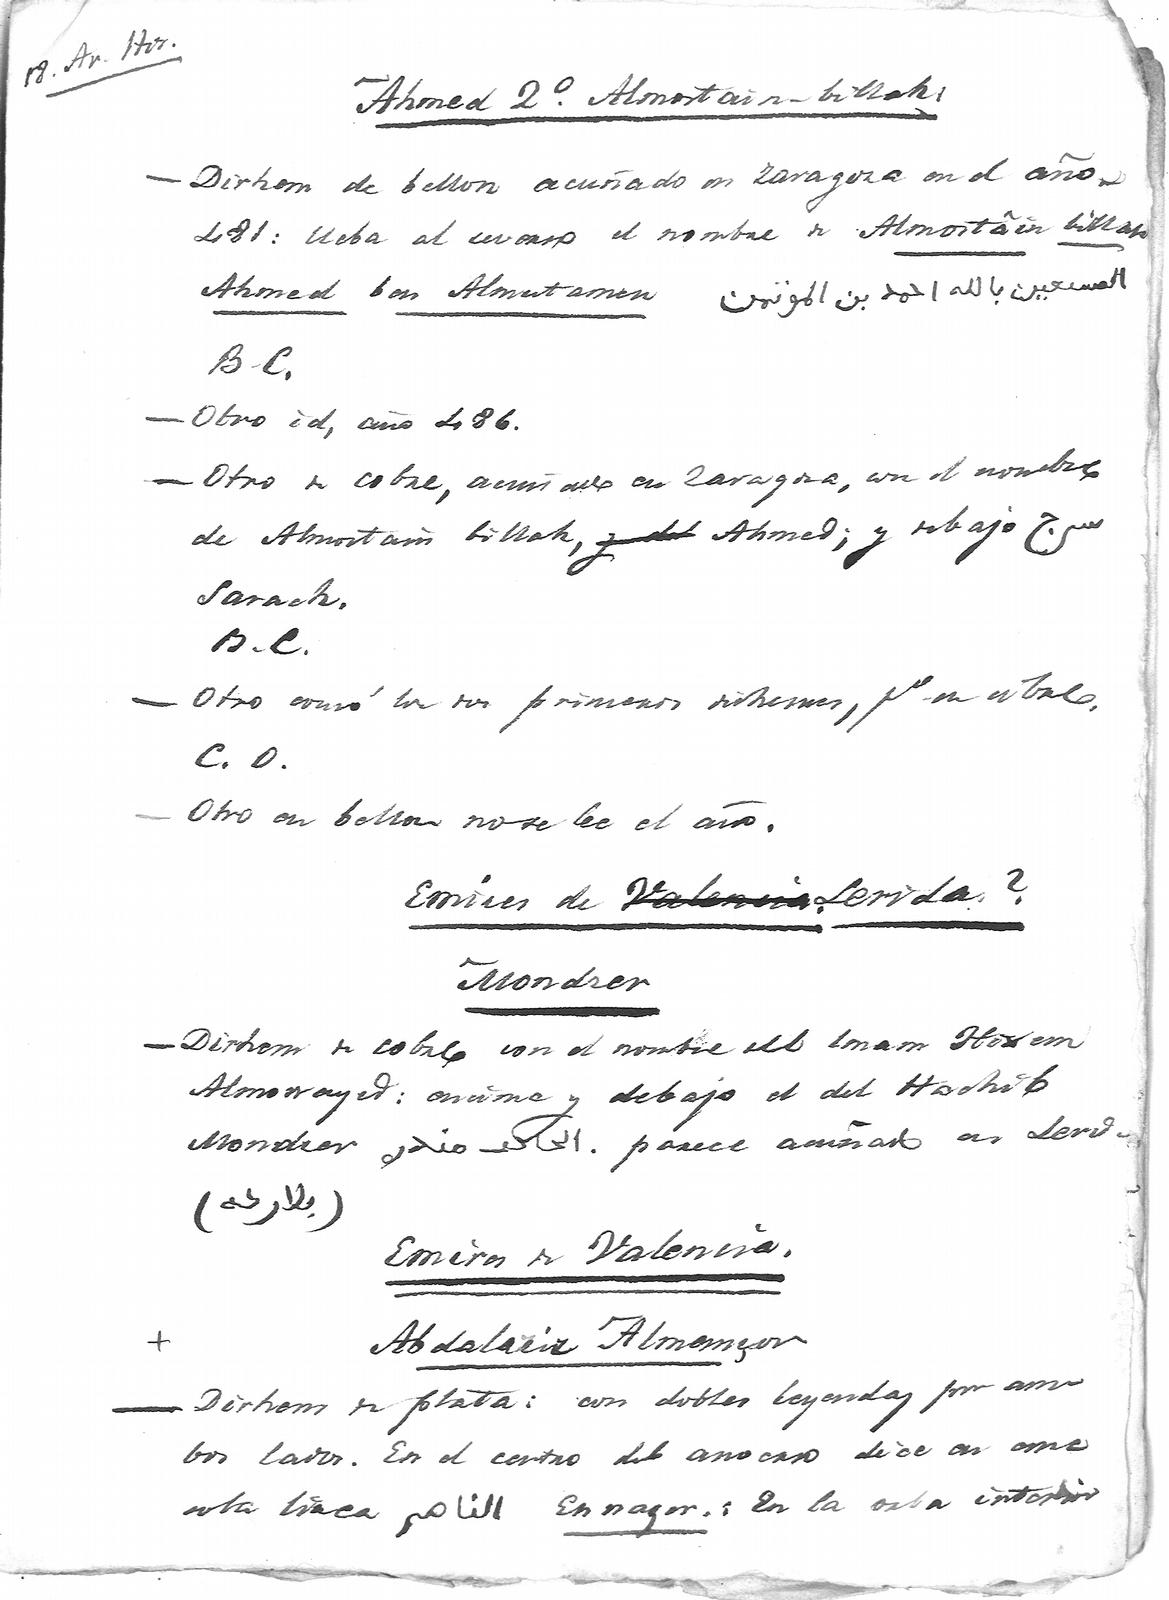 18. Ar. Hór.
Ahmed 2º. Almostain-billah.
— Dirhem de bellon acuñado en Zaragoza en el año
481: lleba al reverso el nombre de Almostain billah
Ahmed ben Almutamen المستعين بالله احمد بن المؤتمن
B-C.
— Otro id, año 486.
— Otro de cobre, acuñado en Zaragoza, con el nombre
de Almostain billah, y del Ahmed; y debajo سرج
Sarach.
B.-C.
— Otro como los dos primeros dirhemes, pº en cobre.
C. D.
— Otro en bellon no se lee el año.
Emires de Valencia. Lerida.?
Mondzer
— Dirhem de cobre con el nombre del Imam Hixem
Almowayed: encima y debajo el del Hachib
Mondzer الحاجب منذر. parece acuñado en
(بلاردة)
Emires de Valencia.
+ Abdalaziz Almançor
— Dirhem de plata: con dobles leyendas por am-
bos lados. En el centro del anverso dice en una
sola linea الناصر Ennaçer.: En la orla interior